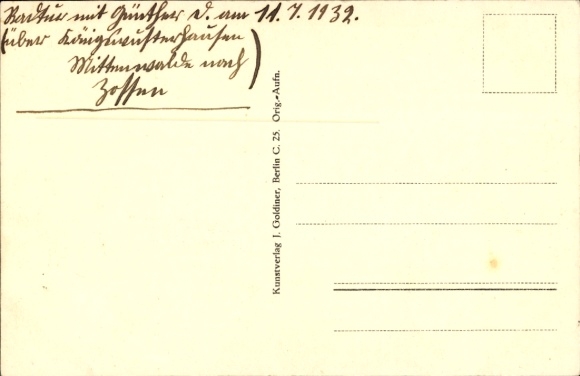 Radtur mit Günther D. am 11.7.1932.
(über Königswusterhausen
Mittenwalde nach)
Zossen
Kunstverlag J. Goldiner, Berlin C. 25. Orig.-Aufn.